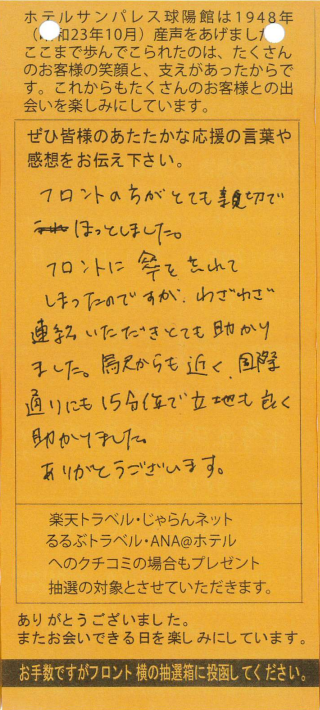 ホテルサンパレス球陽館は1948年
和23年10月）産声をあげました
ここまで歩んでこられたのは、たくさん
のお客様の笑顔と、支えがあったからで
す。これからもたくさんのお客様との出
会いを楽しみにしています。
ぜひ皆様のあたたかな応援の言葉や
感想をお伝え下さい。
フロントの方がとても親切で
ほっとしました。
フロントに傘を忘れて
しまったのですが、わざわざ
連絡いただきとても助かり
ました。駅からも近く、国際
通りにも15分位で立地も良く
助かりました。
ありがとうございます。
楽天トラベル・じゃらんネット
るるぶトラベル・ANA@ホテル
へのクチコミの場合もプレゼント
抽選の対象とさせていただきます。
ありがとうございました。
またお会いできる日を楽しみにしています。
お手数ですがフロント横の抽選箱に投函してください。